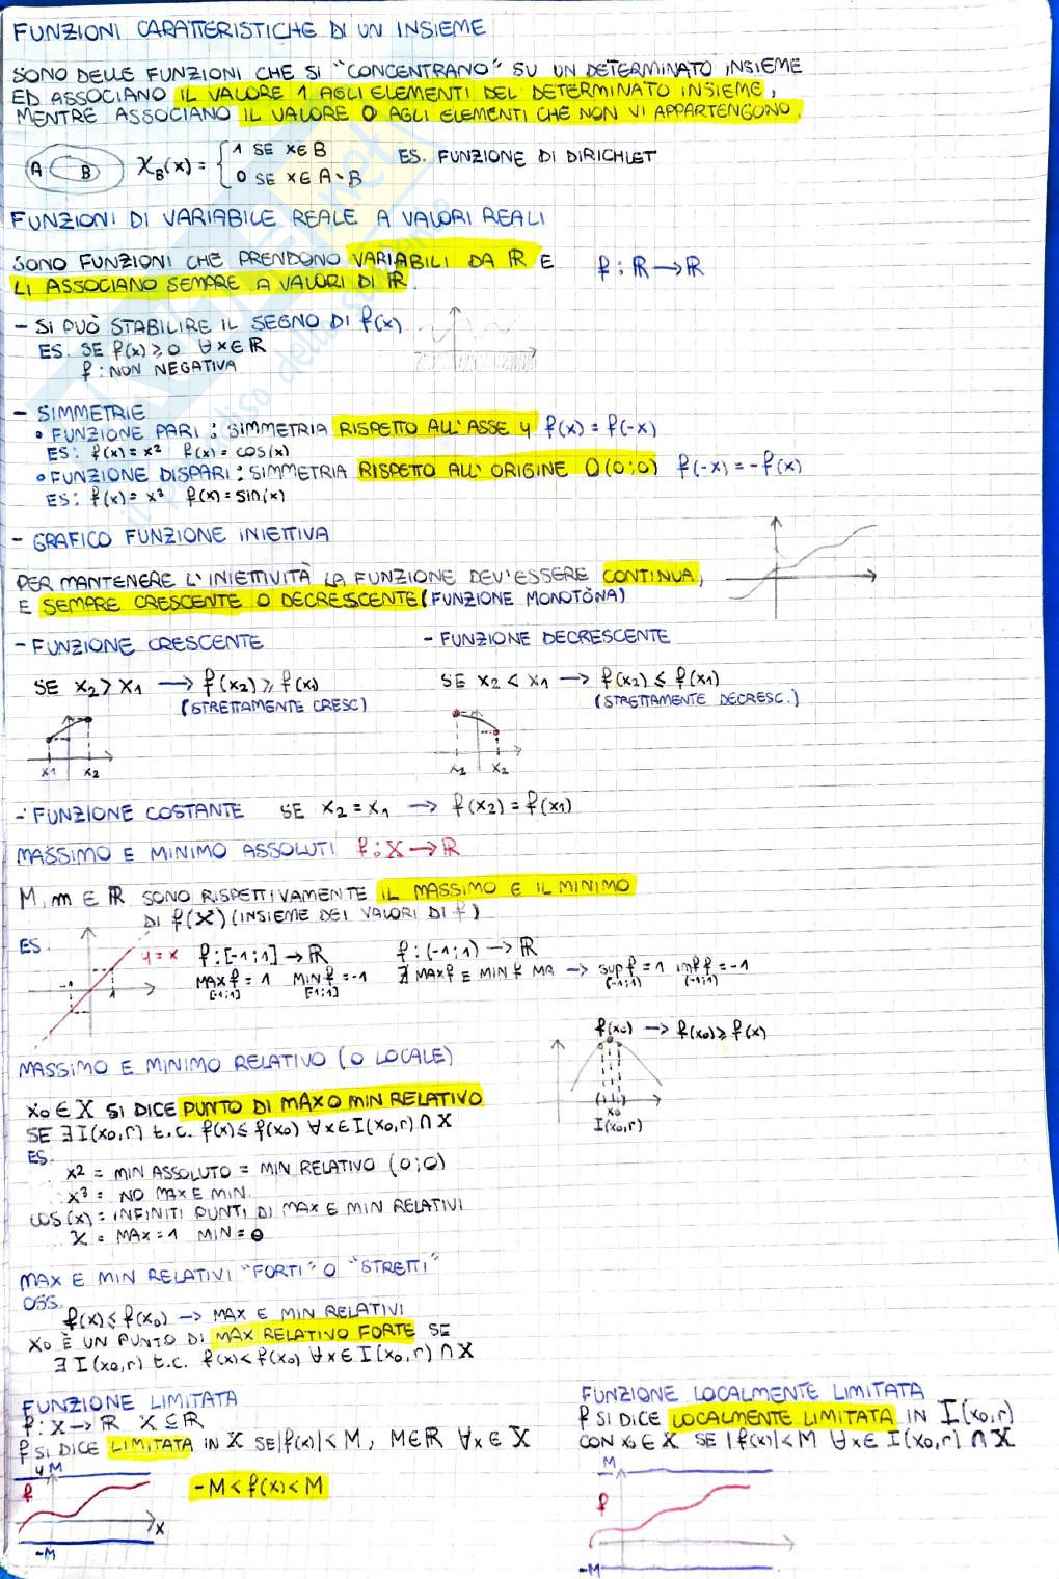 FUNZIONI CARATTERISTICHE DI UN INSIEME
SONO DELLE FUNZIONI CHE SI "CONCENTRANO" SU UN DETERMINATO INSIEME
ED ASSOCIANO IL VALORE 1 AGLI ELEMENTI DEL DETERMINATO INSIEME,
MENTRE ASSOCIANO IL VALORE 0 AGLI ELEMENTI CHE NON VI APPARTENGONO.
A B χ_B(x) = { 1 SE x∈B ES. FUNZIONE DI DIRICHLET
0 SE x∈A∖B
FUNZIONI DI VARIABILE REALE A VALORI REALI
SONO FUNZIONI CHE PRENDONO VARIABILI DA ℝ E f: ℝ → ℝ
LI ASSOCIANO SEMPRE A VALORI DI ℝ.
- SI PUÒ STABILIRE IL SEGNO DI f(x)
ES. SE f(x) ≥ 0 ∀x∈ℝ
f: NON NEGATIVA
- SIMMETRIE
• FUNZIONE PARI: SIMMETRIA RISPETTO ALL'ASSE y f(x) = f(-x)
ES: f(x) = x² f(x) = cos(x)
• FUNZIONE DISPARI: SIMMETRIA RISPETTO ALL'ORIGINE O(0;0) f(-x) = -f(x)
ES: f(x) = x³ f(x) = sin(x)
- GRAFICO FUNZIONE INIETTIVA
PER MANTENERE L'INIETTIVITÀ LA FUNZIONE DEV'ESSERE CONTINUA,
E SEMPRE CRESCENTE O DECRESCENTE (FUNZIONE MONOTÒNA)
- FUNZIONE CRESCENTE - FUNZIONE DECRESCENTE
SE x₂ > x₁ → f(x₂) ≥ f(x₁) SE x₂ < x₁ → f(x₂) ≤ f(x₁)
(STRETTAMENTE CRESC) (STRETTAMENTE DECRESC.)
x1 x2 x1 x2
- FUNZIONE COSTANTE SE x₂ = x₁ → f(x₂) = f(x₁)
MASSIMO E MINIMO ASSOLUTI f: X → ℝ
M, m ∈ ℝ SONO RISPETTIVAMENTE IL MASSIMO E IL MINIMO
DI f(X) (INSIEME DEI VALORI DI f)
ES. y = x f: [-1;1] → ℝ f: (-1;1) → ℝ
-1 1 MAX f = 1 MIN f = -1 ∄ MAX f E MIN f MA → sup f = 1 inf f = -1
[-1;1] [-1;1] (-1;1) (-1;1)
f(x₀) → f(x₀) ≥ f(x)
MASSIMO E MINIMO RELATIVO (O LOCALE)
x₀ ∈ X SI DICE PUNTO DI MAX O MIN RELATIVO
x₀
SE ∃ I(x₀,r) t.c. f(x) ≤ f(x₀) ∀x∈I(x₀,r) ∩ X
I(x₀,r)
ES.
x² = MIN ASSOLUTO = MIN RELATIVO (0;0)
x³ = NO MAX E MIN
cos(x) = INFINITI PUNTI DI MAX E MIN RELATIVI
χ = MAX = 1 MIN = 0
MAX E MIN RELATIVI "FORTI" O "STRETTI"
OSS.
f(x) ≤ f(x₀) → MAX E MIN RELATIVI
x₀ È UN PUNTO DI MAX RELATIVO FORTE SE
∃ I(x₀,r) t.c. f(x) < f(x₀) ∀x∈I(x₀,r) ∩ X
FUNZIONE LIMITATA
f: X → ℝ X ⊆ ℝ
f SI DICE LIMITATA IN X SE |f(x)| < M, M∈ℝ ∀x∈X
y M
f
-M < f(x) < M
x
-M
FUNZIONE LOCALMENTE LIMITATA
f SI DICE LOCALMENTE LIMITATA IN I(x₀,r)
CON x₀ ∈ X SE |f(x)| < M ∀x∈I(x₀,r) ∩ X
M
f
-M